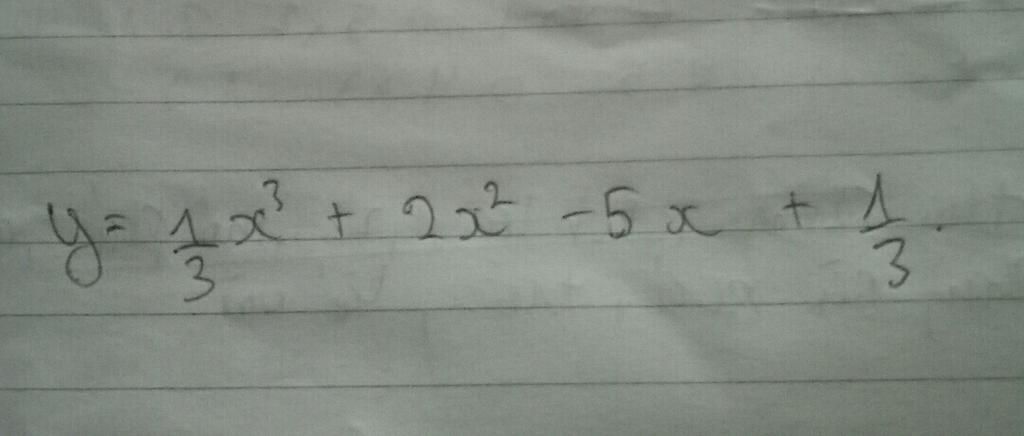 y = 1/3 x³ + 2x² - 5x + 1/3.